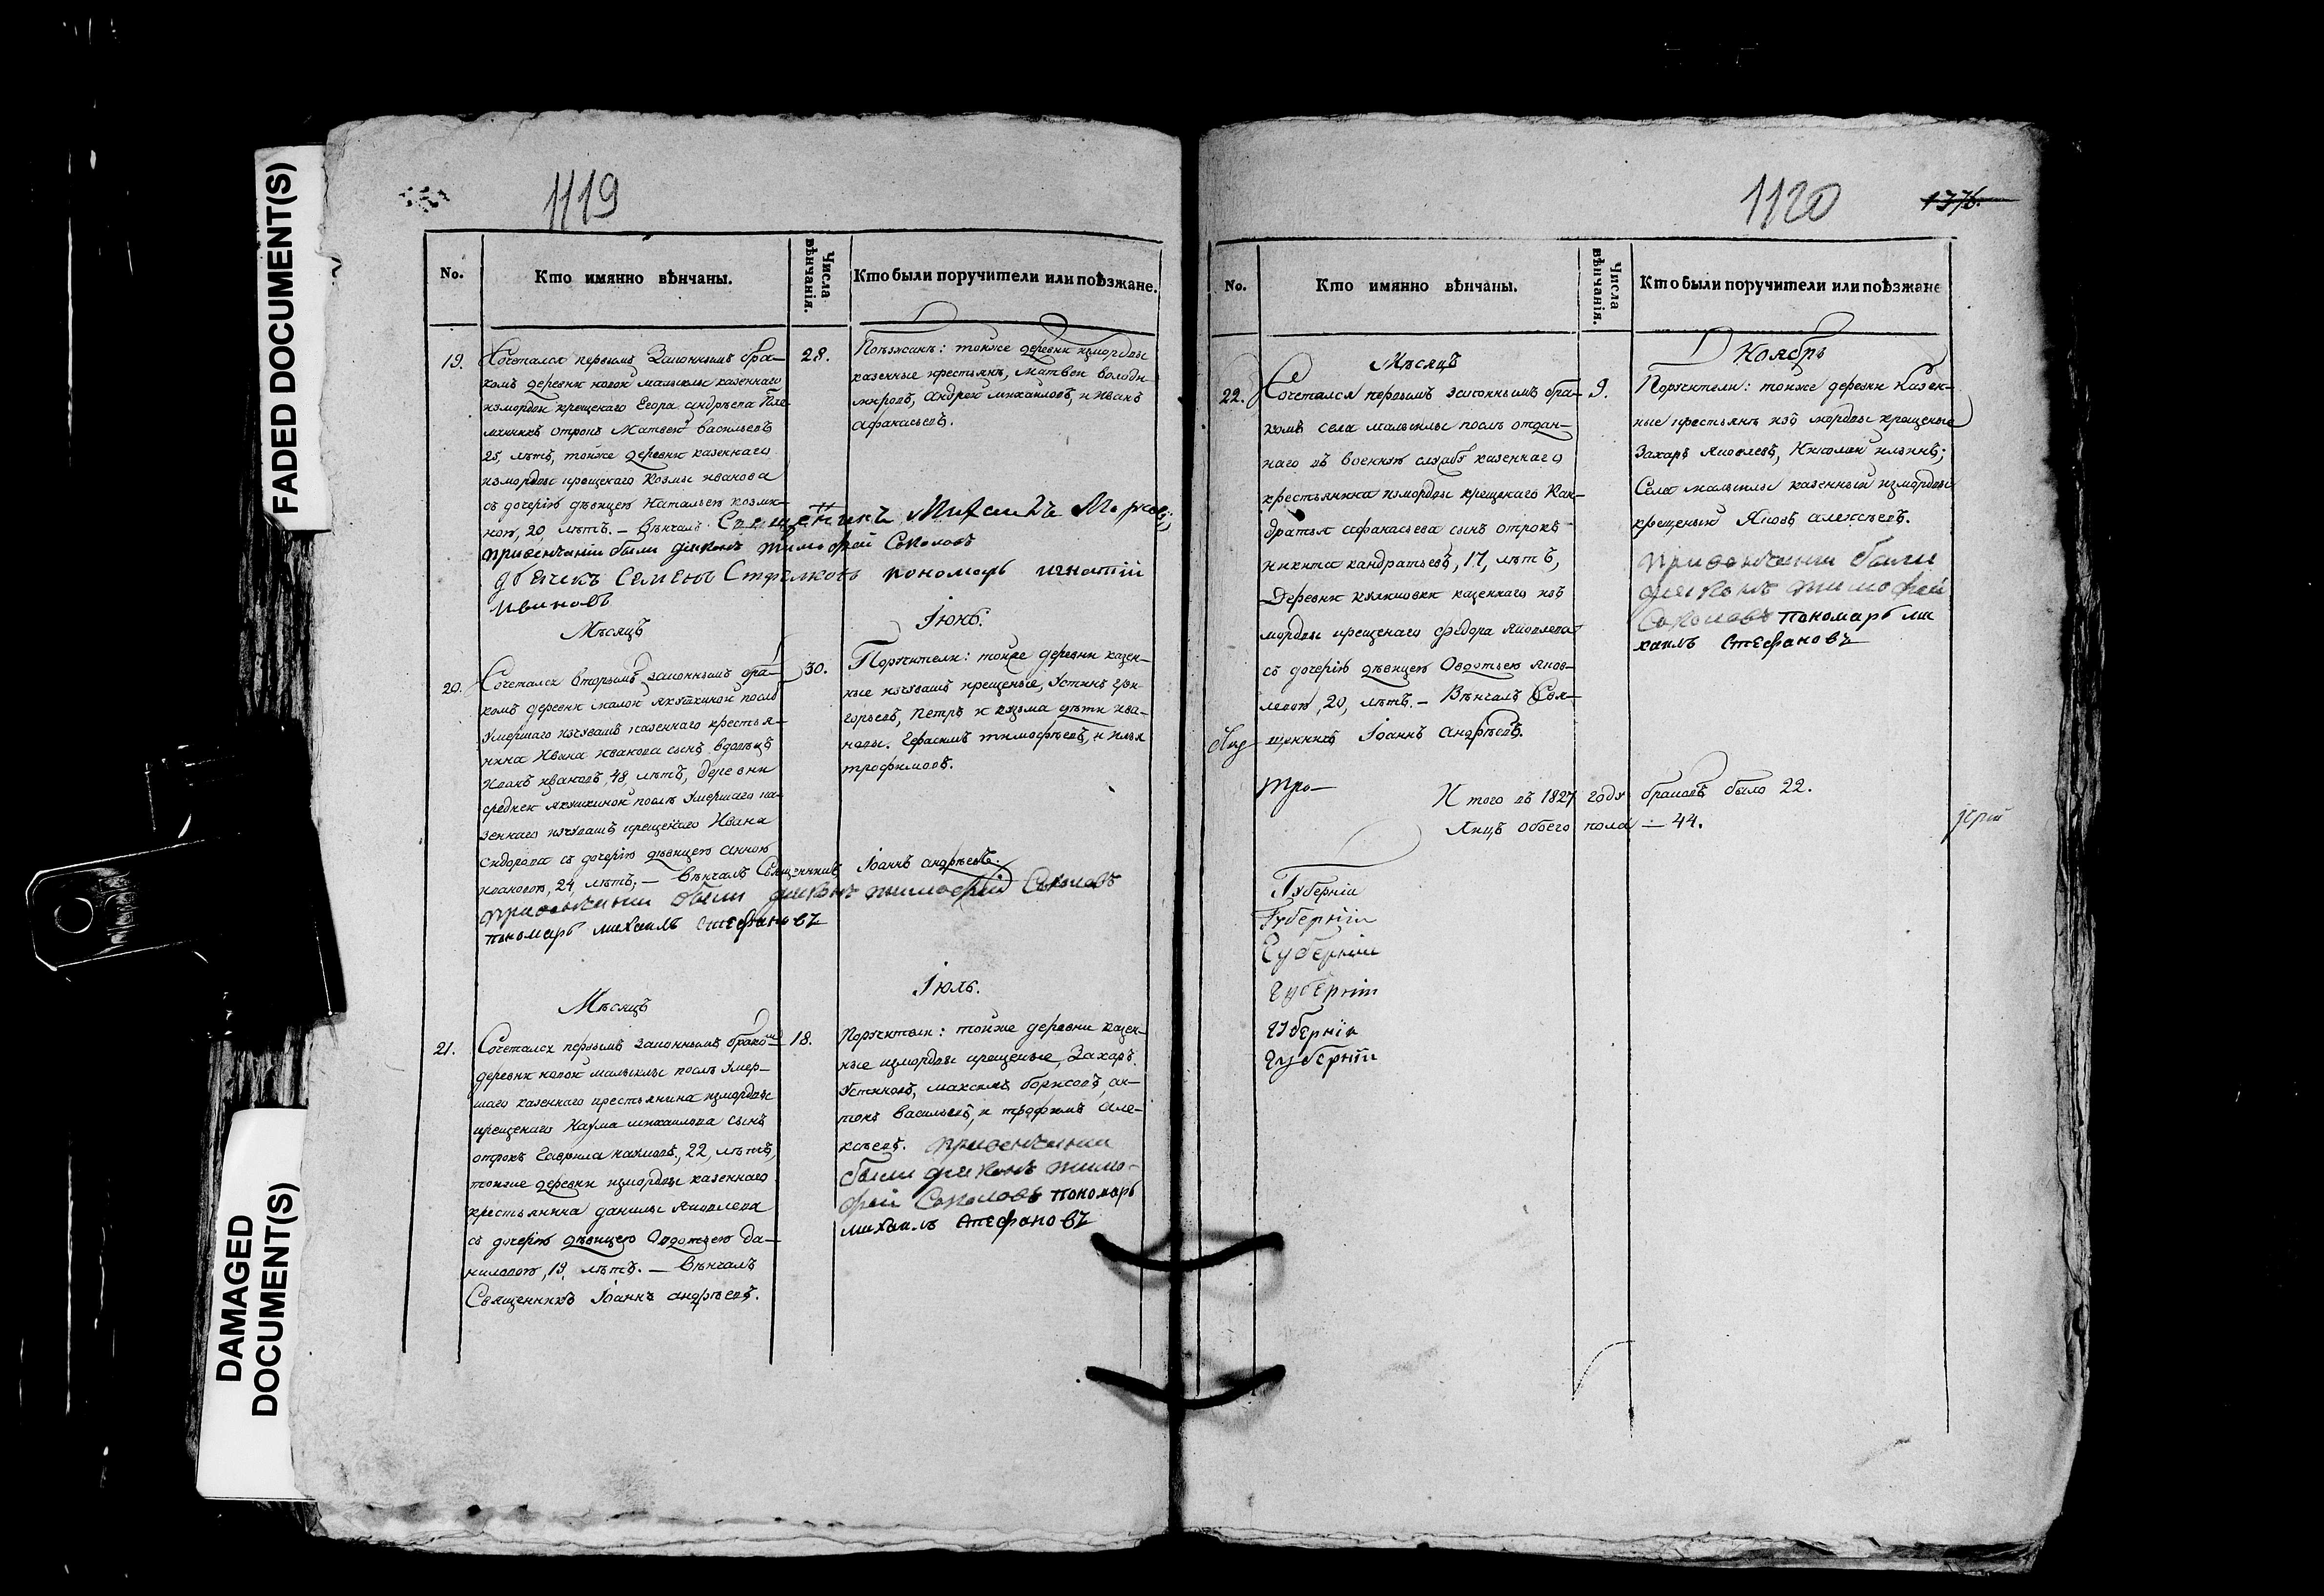 FADED DOCUMENT(S)
DAMAGED
DOCUMENT(S)
1119
No.
Кто имянно вѣнчаны.
Числа вѣнчанія.
Кто были поручители или поѣзжане.
19.
Сочетался первымъ законнымъ бра-
комъ деревни новой малыклы казеннаго
измордвы крещенаго Егора андрѣева пле-
мянникъ отрокъ Матвей васильевъ
25, лѣтъ, тойже деревни казеннаго
измордвы крещенаго Козмы иванова
съ дочерію дѣвицею Натальею козми-
ною, 20, лѣтъ. — Вѣнчалъ Священникъ Михаилъ
привенчаніи были діаконъ тимофей Соколовъ
дьячекъ Семенъ Стрелковъ пономарь игнатій
ивановъ
28.
Поѣзжанѣ: тойже деревни измордвы
казенные крестьянѣ, Матвей володи-
мировъ, Андрей михайловъ, и Иванъ
Афанасьевъ.
Мѣсяцъ
Іюнь.
20.
Сочетался вторымъ законнымъ бра-
комъ деревни малой якушкиной послѣ
умершаго изчувашъ казеннаго крестья-
нина Ивана иванова сынъ вдовецъ
Иванъ ивановъ, 48, лѣтъ, деревни
средней якушкиной послѣ умершаго ка-
зеннаго изчувашъ крещенаго Ивана
сидорова съ дочерію дѣвицею анною
ивановою, 24, лѣтъ; — Вѣнчалъ Священникъ Іоаннъ андрѣевъ.
привенчании были диаконъ тимофей Соколовъ
пономарь михаилъ стефановъ
30.
Поручители: тойже деревни казен-
ные изчувашъ крещеные, Устинъ гри-
горьевъ, Петръ и кузма дѣти ива-
новы. Герасимъ тимофѣевъ, и илья
трофимовъ.
Мѣсяцъ
Іюль.
21.
Сочетался первымъ законнымъ бракомъ
деревни новой малыклы послѣ умер-
шаго казеннаго крестьянина измордвы
крещенаго Наума михаилова сынъ
отрокъ Гаврила наумовъ, 22, лѣтъ,
тойже деревни измордвы казеннаго
крестьянина данилы яковлева
съ дочерію дѣвицею Овдотьею да-
ниловою, 19, лѣтъ. — Вѣнчалъ
Священникъ Іоаннъ андрѣевъ.
18.
Поручители: тойже деревни казен-
ные измордвы крещеные, Захаръ
Устиновъ, максимъ борисовъ, ан-
тонъ васильевъ, и трофимъ але-
ксѣевъ. привенчании
были диаконъ тимо-
фей Соколовъ пономарь
михаилъ стефановъ
1120
1376.
No.
Кто имянно вѣнчаны.
Числа вѣнчанія.
Кто были поручители или поѣзжане
Мѣсяцъ
Ноябрь
22.
Сочетался первымъ законнымъ бра-
комъ села малыклы послѣ отдан-
наго въ военную службу казеннаго
крестьянина измордвы крещенаго Кан-
дратья афанасьева сынъ отрокъ
никита кандратьевъ, 17, лѣтъ,
Деревни казеннаго изъ
мордвы крещенаго федора яковлева
съ дочерію дѣвицею Овдотьею яков-
левою, 20, лѣтъ. — Вѣнчалъ Свя-
щенникъ Іоаннъ Андрѣевъ.
9.
Поручители: тойже деревни Казен-
ные крестьянѣ изъ мордвы крещеные
Захаръ Яковлевъ, Николай ильинъ;
Села малыклы казенный измордвы
крещеный Яковъ алексѣевъ.
привенчании были
диаконъ тимофей
Соколовъ пономарь ми
хаилъ стефановъ
Итого въ 1827 году браковъ было 22.
Лицъ обоего пола — 44.
Губерніи
Губерніи
Губерніи
Губерніи
Губерніи
Губерніи